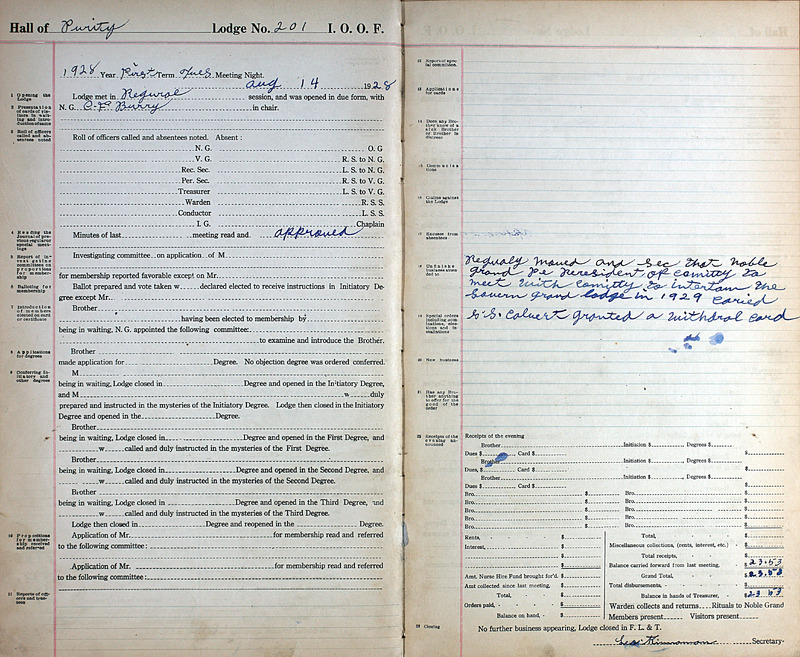 Hall of Purity Lodge No. 201 I. O. O. F.
1928 Year First Term Tues Meeting Night.
Aug 14 1928
Lodge met in Regural session, and was opened in due form, with
N. G. Burry in chair.
Roll of officers called and absentees noted. Absent:
N. G. O. G
V. G. R. S. to N. G.
Rec. Sec. L. S. to N. G.
Per. Sec. R. S. to V. G.
Treasurer L. S. to V. G.
Warden R. S. S.
Conductor L. S. S.
I. G. Chaplain
Minutes of last meeting read and approved
Investigating committee on application of M
for membership reported favorable except on Mr.
Ballot prepared and vote taken w declared elected to receive instructions in Initiatory De-
gree except Mr.
Brother
having been elected to membership by
being in waiting, N. G. appointed the following committee:
to examine and introduce the Brother.
Brother
made application for Degree. No objection degree was ordered conferred.
M
being in waiting, Lodge closed in Degree and opened in the Initiatory Degree,
and M w duly
prepared and instructed in the mysteries of the Initiatory Degree. Lodge then closed in the Initiatory
Degree and opened in the Degree.
Brother
being in waiting, Lodge closed in Degree and opened in the First Degree, and
w called and duly instructed in the mysteries of the First Degree.
Brother
being in waiting, Lodge closed in Degree and opened in the Second Degree, and
w called and duly instructed in the mysteries of the Second Degree.
Brother
being in waiting, Lodge closed in Degree and opened in the Third Degree, and
w called and duly instructed in the mysteries of the Third Degree.
Lodge then closed in Degree and reopened in the Degree.
Application of Mr. for membership read and referred
to the following committee:
Application of Mr. for membership read and referred
to the following committee:
1 Opening the Lodge
4 Reading the
6 Balloting for membership
8 Applications for degrees
12 Report of special committee.
13 Applications for cards
14 Does any Brother know of a sick Brother or Brother in distress
15 Communications
16 Claims against the Lodge
17 Excuses from absentees
18 Unfinished business
20 New business
21 Has any Brother anything to offer for the good of the order
22 Receipts of the evening announced
23 Closing
Regualy moved and Sec that noble
grand be President of comitty to
meet with comitty to intertain the
Sovern grand lodge in 1929 caried
S. S. Calvert granted a withdral card
Receipts of the evening
Brother Initiation $ Degrees $
Dues $ Card $ $
Brother Initiation $ Degrees $
Dues, $ Card $ $
Brother Initiation $ Degrees $
Dues $ Card $ $
Bro. $ Bro. $
Bro. $ Bro. $
Bro. $ Bro. $
Bro. $ Bro. $
Rents, $ Total, $
Interest, $ Miscellaneous collections, (rents, interest, etc.) $
Total receipts, $
Balance carried forward from last meeting, $ 23.53
Amt. Nurse Hire Fund brought for'd. $ Grand Total, $ 23.53
Amt collected since last meeting, Total disbursements, $
Total, $ Balance in hands of Treasurer, $ 23.53
Orders paid, Warden collects and returns Rituals to Noble Grand
Balance on hand, $ Members present Visitors present
No further business appearing, Lodge closed in F. L. & T.
Geo Kinnamon Secretary